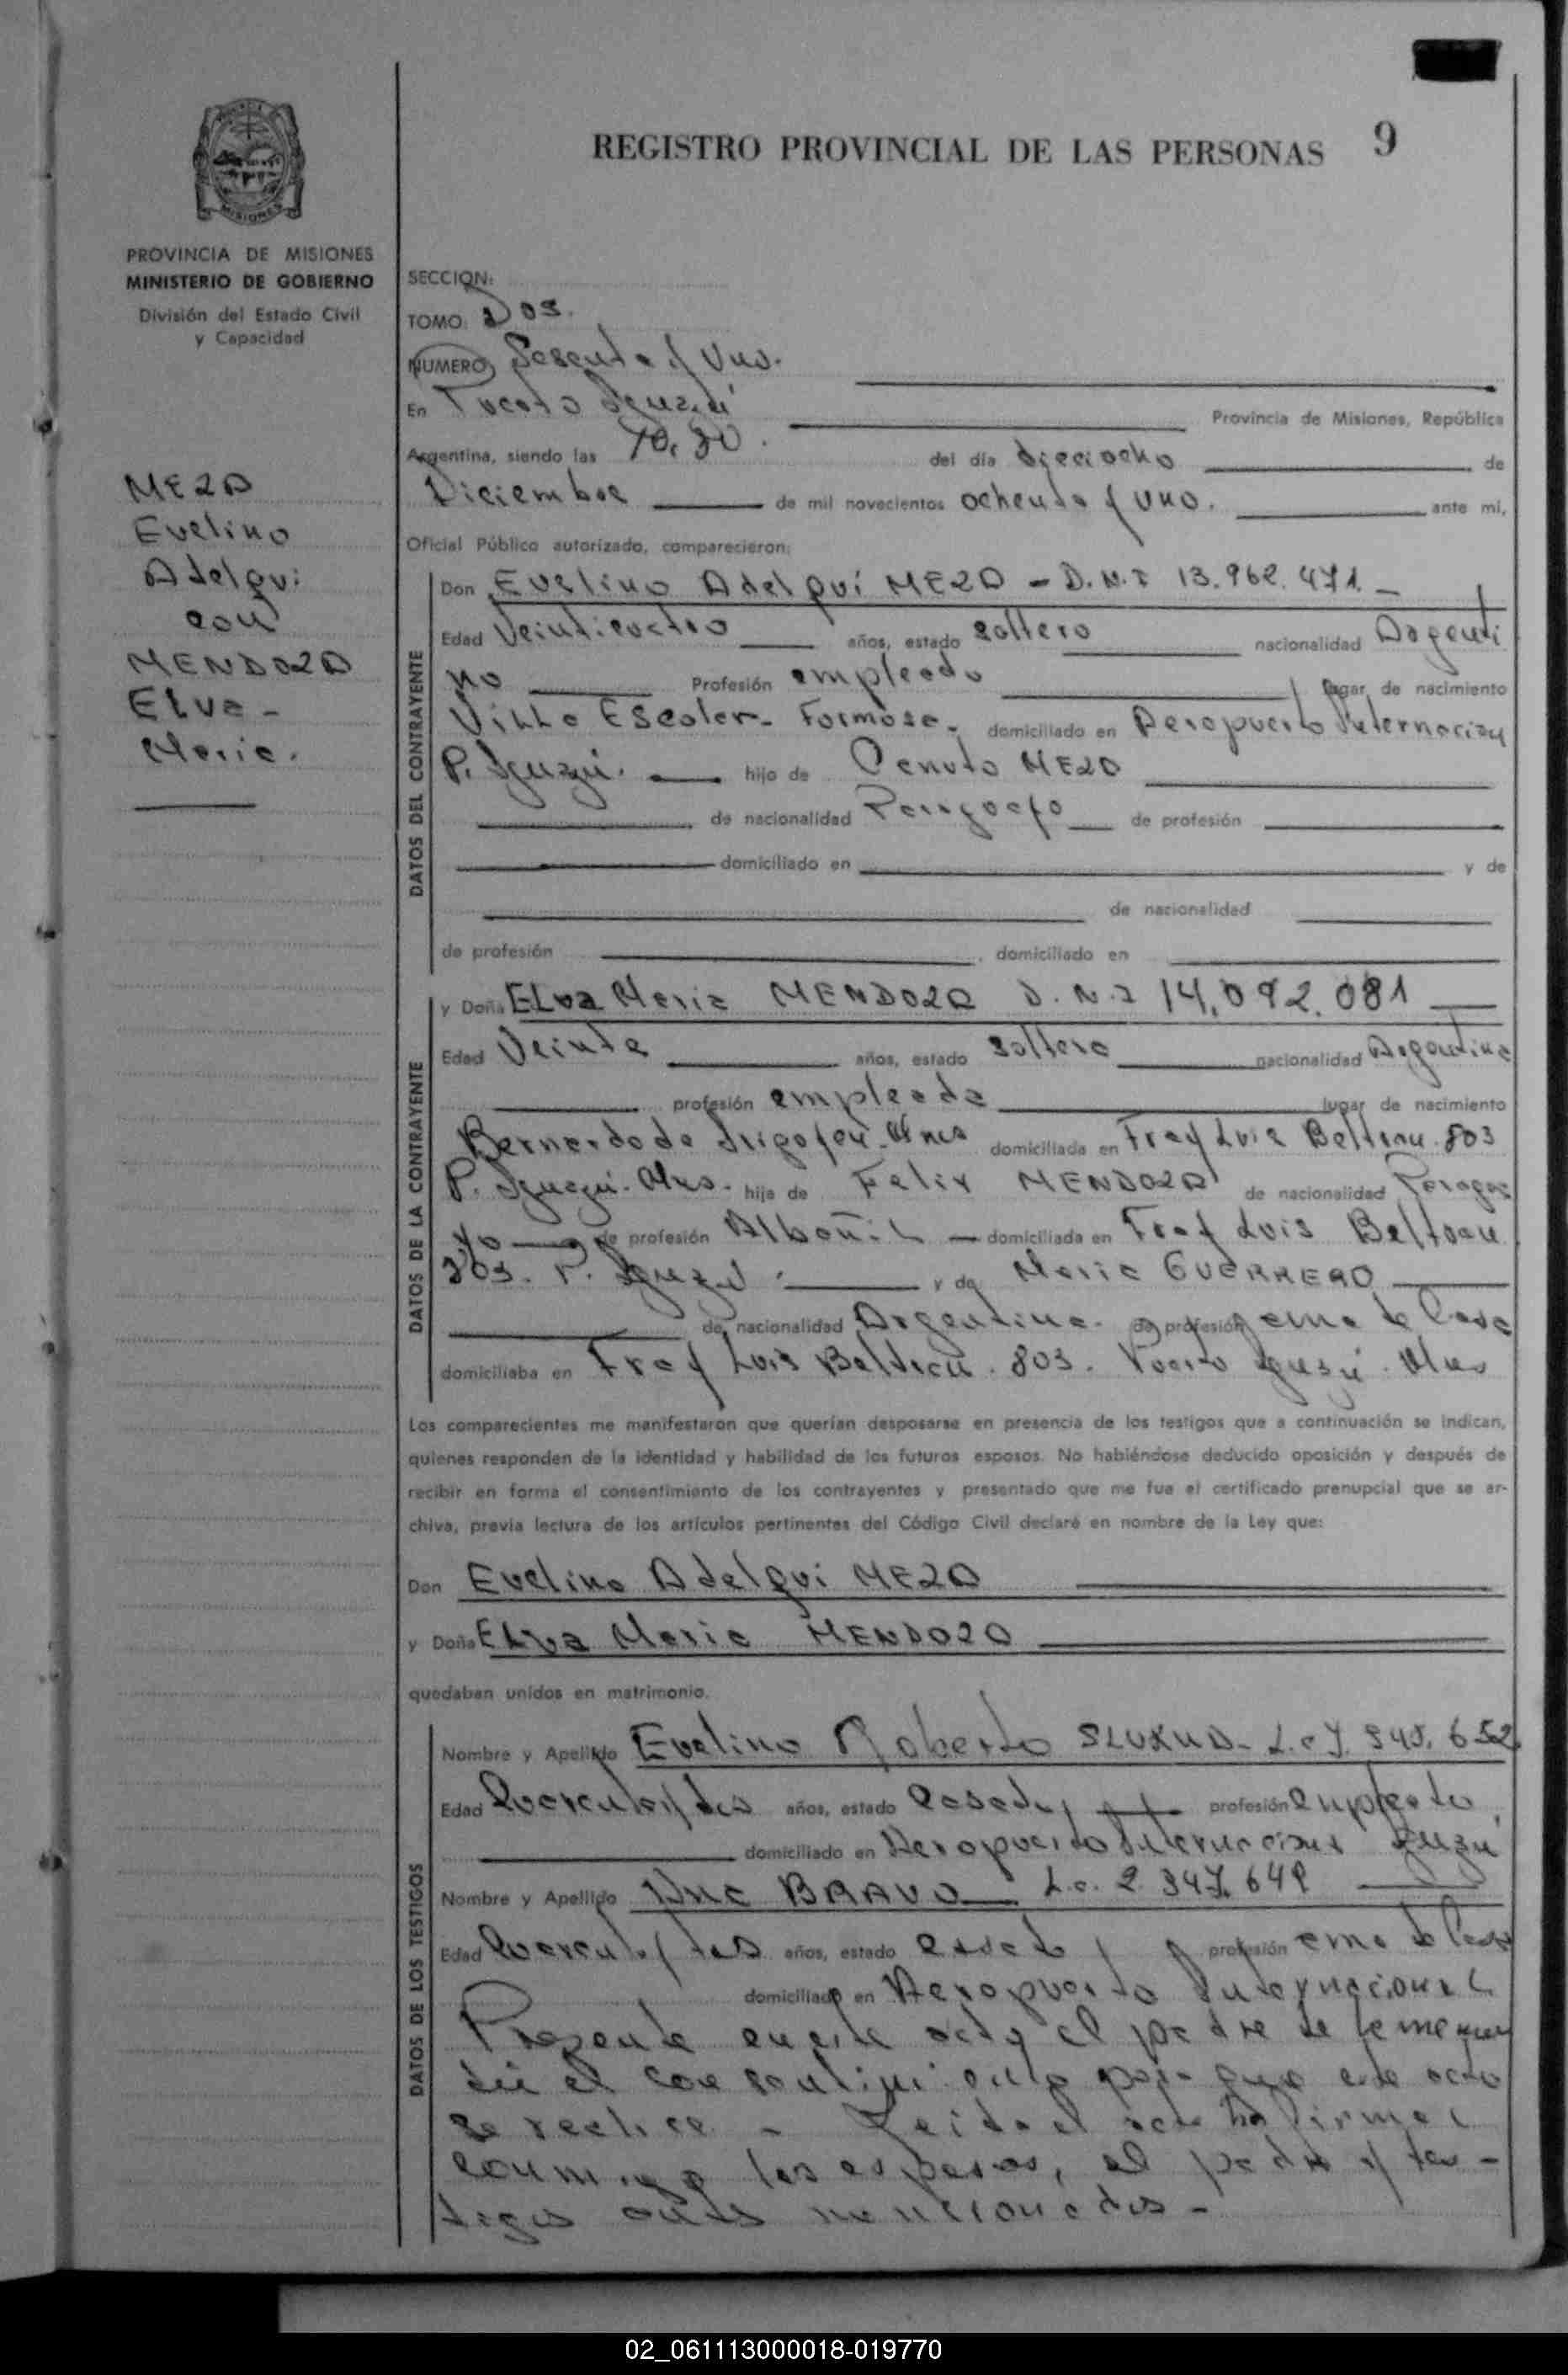 REGISTRO PROVINCIAL DE LAS PERSONAS 9
MISIONES
PROVINCIA DE MISIONES
MINISTERIO DE GOBIERNO
División del Estado Civil
y Capacidad
MEZA
Evelino
Adelqui
con
MENDOZA
Elva
Maria.
SECCION:
TOMO: Dos.
NUMERO Sesenta y Uno.
En Puerto Iguazú Provincia de Misiones, República
Argentina, siendo las 10,30. del día dieciocho de
Diciembre de mil novecientos ochenta y uno. ante mi,
Oficial Público autorizado, comparecieron:
DATOS DEL CONTRAYENTE
Don Evelino Adelqui MEZA - D.N.I 13.962.471.-
Edad Veinticuatro años, estado soltero nacionalidad Argenti
no Profesión empleado lugar de nacimiento
Villa Escolar - Formosa - domiciliado en Aeropuerto Internacional
P. Iguazú. hijo de MEZA
de nacionalidad Paraguayo de profesión
domiciliado en y de
de nacionalidad
de profesión domiciliado en
DATOS DE LA CONTRAYENTE
y Doña Elva Maria MENDOZA D.N.I 14,092.081
Edad Veinte años, estado soltera nacionalidad Argentina
profesión empleada lugar de nacimiento
Bernardo de Irigoyen. Mnes domiciliada en Fray Luis Beltran. 803
P. Iguazú. Mns. hija de Felix MENDOZA de nacionalidad Paragua
yo de profesión Albañil - domiciliada en Fray Luis Beltran
803. P. Iguazú. y de Maria GUERRERO
de nacionalidad Argentina. de profesión ama de Casa
domiciliaba en Fray Luis Beltran. 803. Puerto Iguazú. Mns
Los comparecientes me manifestaron que querían desposarse en presencia de los testigos que a continuación se indican,
quienes responden de la identidad y habilidad de los futuros esposos. No habiéndose deducido oposición y después de
recibir en forma el consentimiento de los contrayentes y presentado que me fue el certificado prenupcial que se ar-
chiva, previa lectura de los artículos pertinentes del Código Civil declaré en nombre de la Ley que:
Don Evelino Adelqui MEZA
y Doña Elva Maria MENDOZA
quedaban unidos en matrimonio.
DATOS DE LOS TESTIGOS
Nombre y Apellido Evelino Roberto
Edad años, estado casado, profesión empleado
domiciliado en Aeropuerto Internacional Iguazú
Nombre y Apellido Ana BRAVO L.c. 2.347.649
Edad años, estado casada, profesión ama de Casa
domiciliado en Aeropuerto Internacional
Presente en este acto el padre de la menor
dió el consentimiento para que este acto
se realice - Leida el acta la firman
conmigo los esposos, el padre y tes-
tigos antes mencionados -
02_061113000018-019770